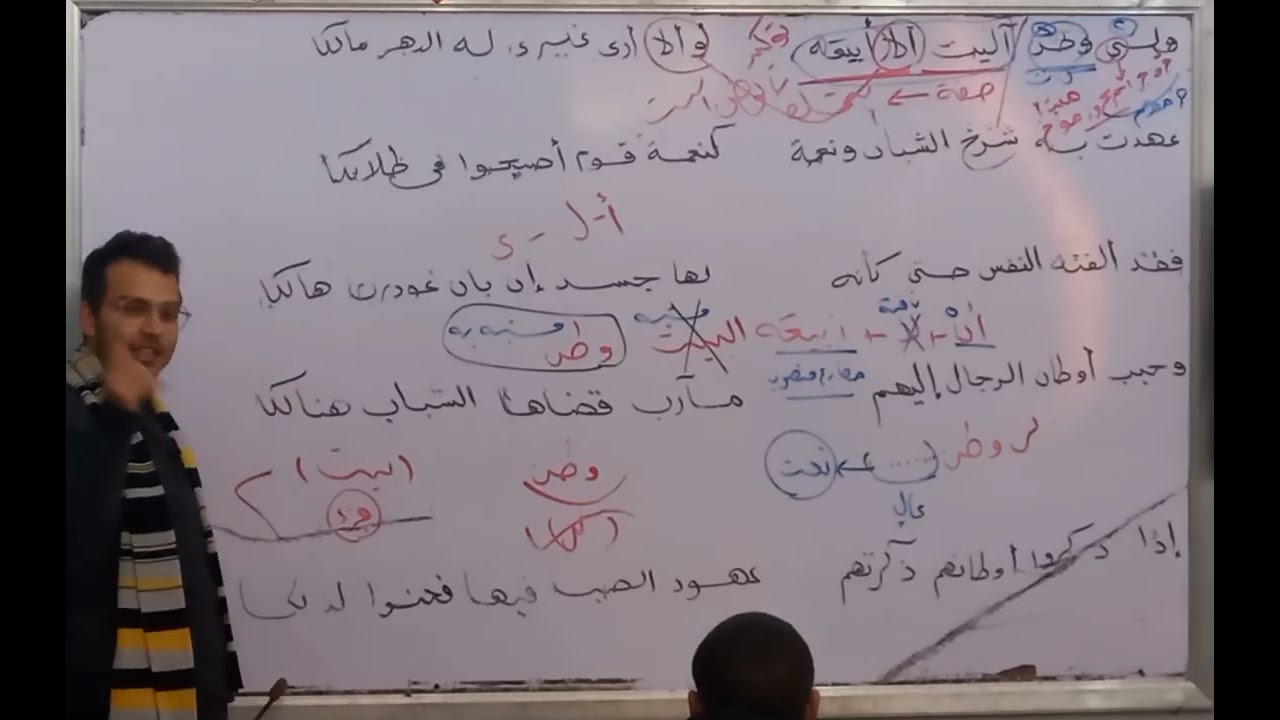 ولي وطن آليت ألا أبيعه وألا أرى غيري له الدهر مالكا
صفة ←
عهدت به شرخ الشباب ونعمة كنعمة قوم أصبحوا في ظلالكا
أ - ل - ي
فقد ألفته النفس حتى كأنه لها جسد إن بان غودرت هالكا
أن + لا + أبيعه البيت مشبه وطن مشبه به
مضارع منصوب
وحبب أوطان الرجال إليهم مآرب قضاها الشباب هنالكا
لي وطن (......) ← نعت وطن (بيت)
عال (كل) جزء
إذا ذكروا أوطانهم ذكرتهم عهود الصبا فيها فحنوا لذلكا